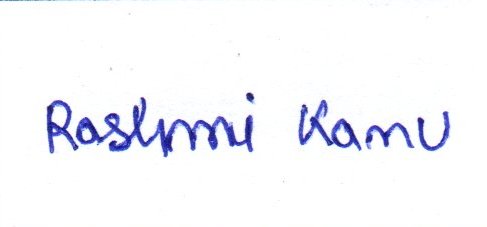 Rashmi Kanu